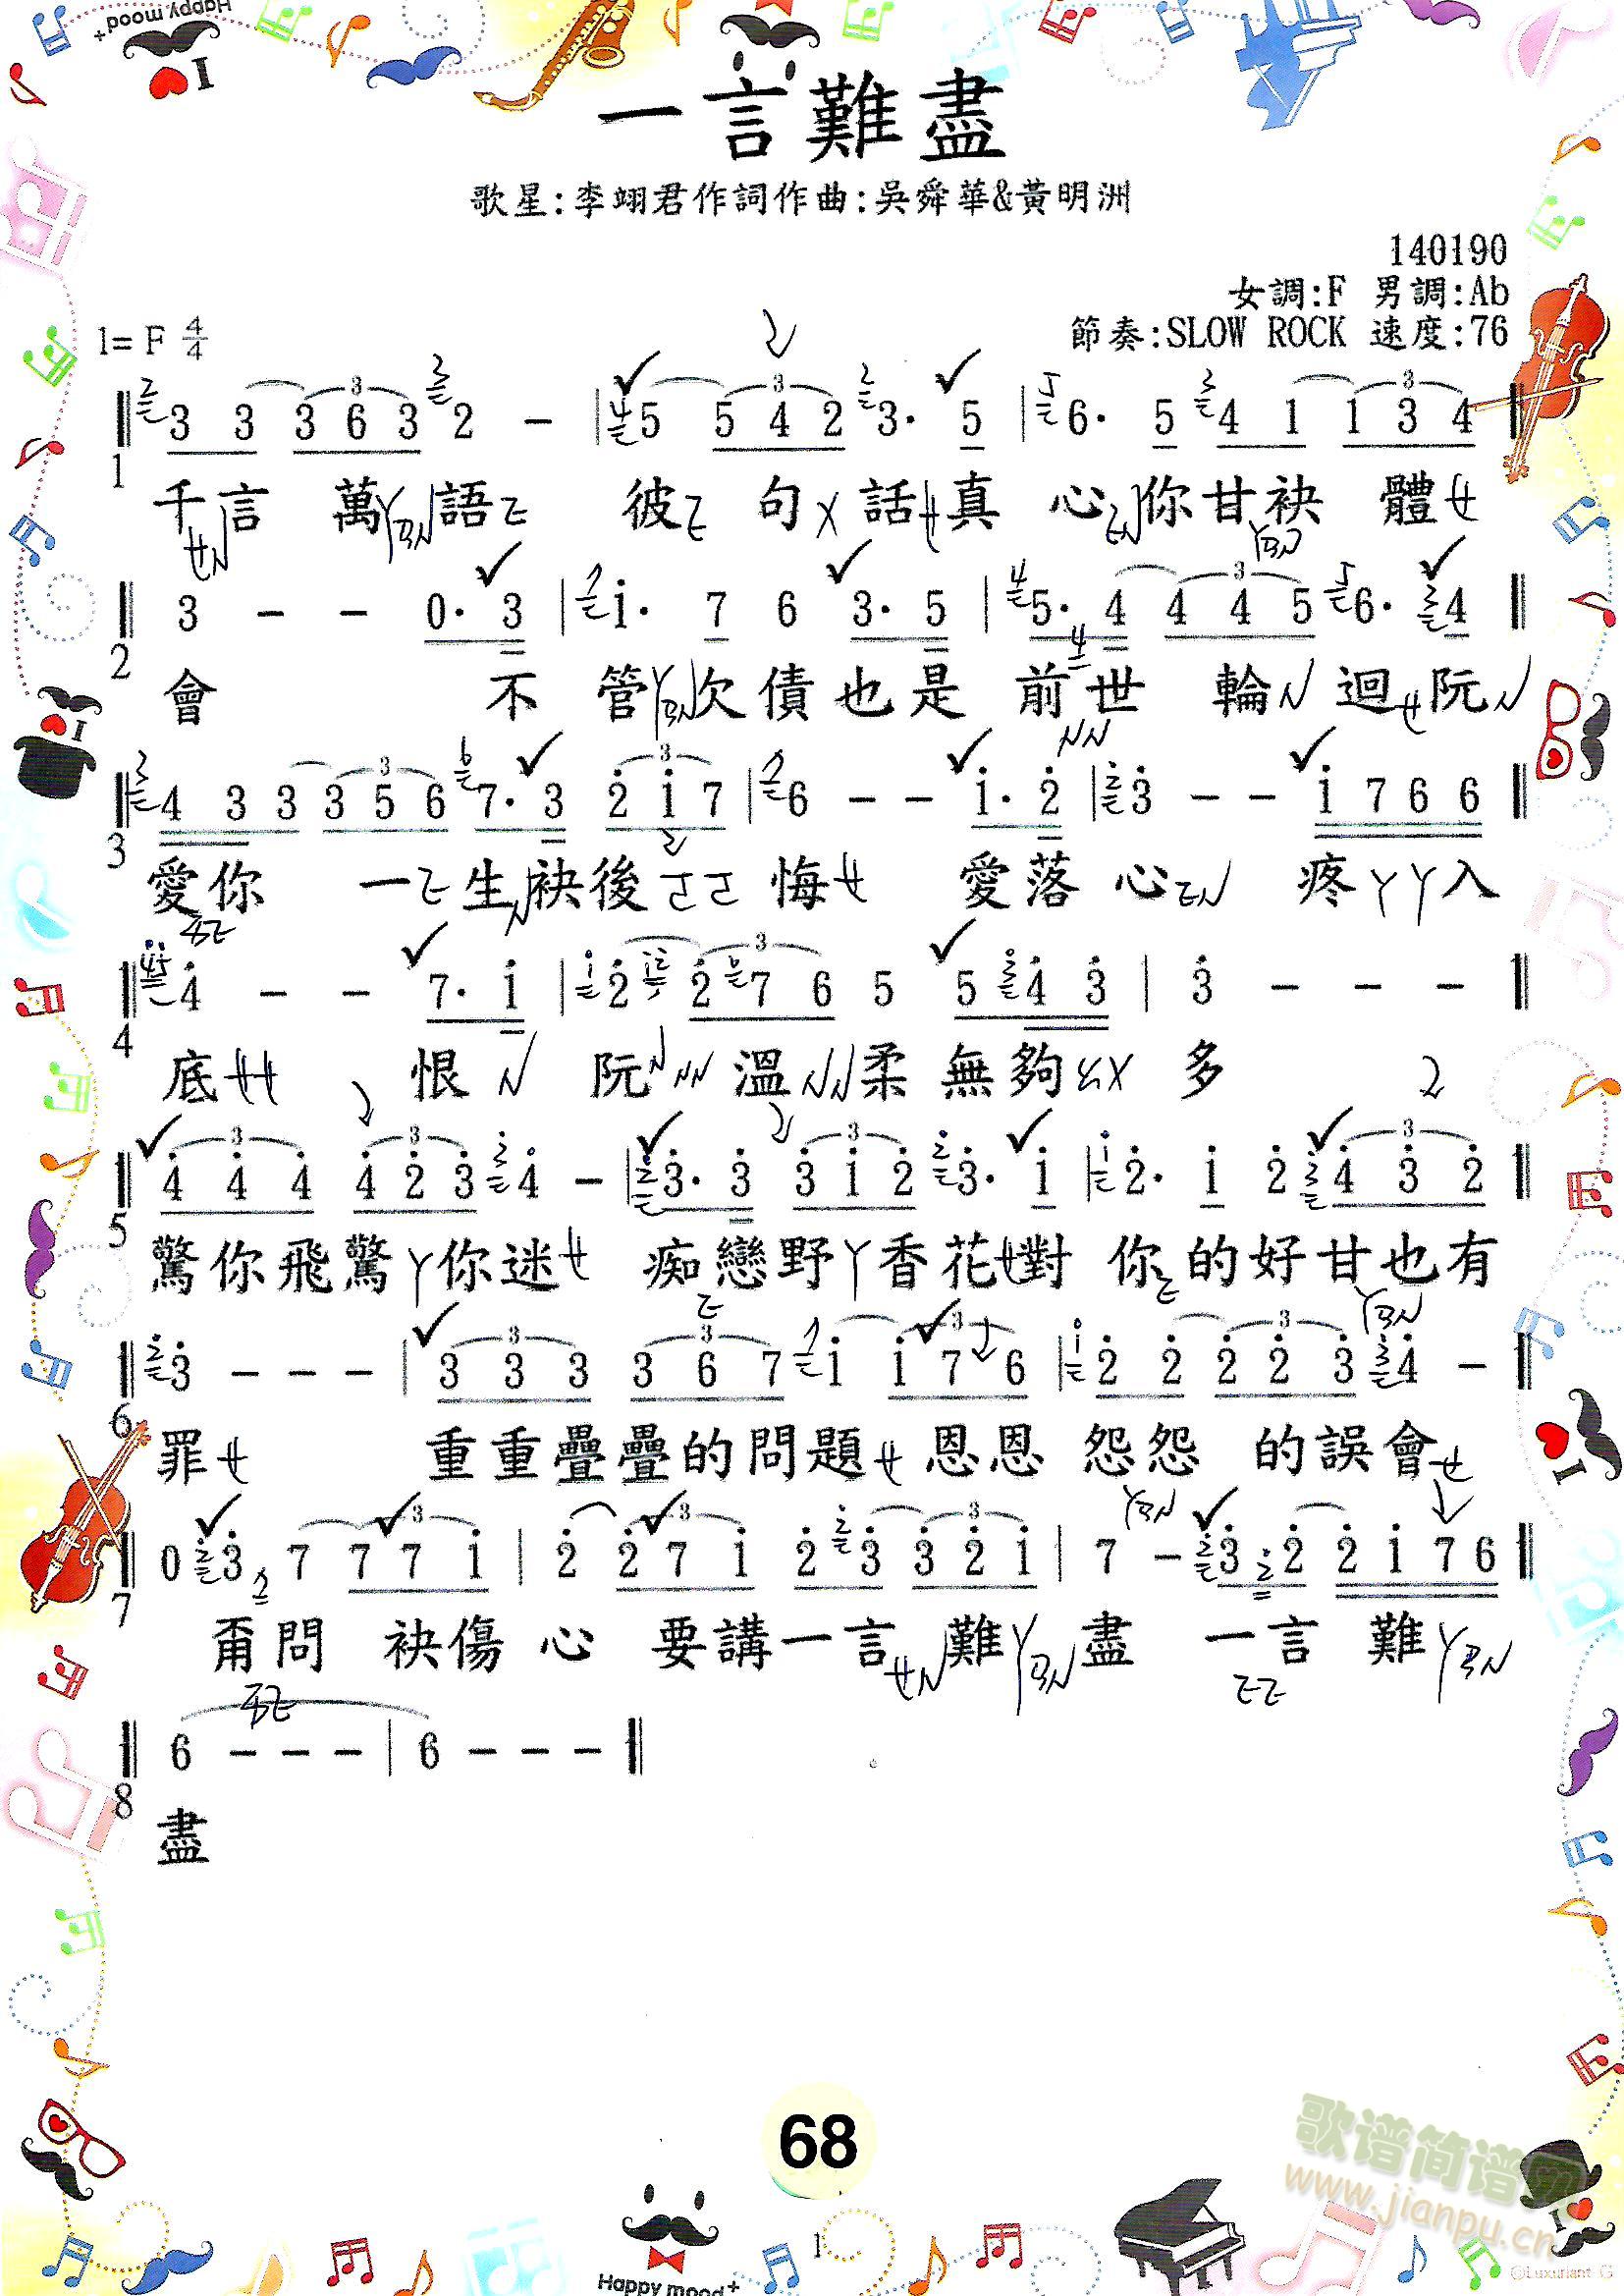 Happy mood+
I
一言難盡
歌星:李翊君作詞作曲:吳舜華&黃明洲
140190
女調:F 男調:Ab
1= F 4/4
節奏:SLOW ROCK 速度:76
3 3 3 6 3 2 - | 5 5 4 2 3· 5 | 6· 5 4 1 1 3 4
1
千言 萬語 彼 句 話真 心 你甘袂 體
3 - - 0· 3 | i· 7 6 3· 5 | 5· 4 4 4 5 6· 4
2
會 不 管 欠債也是 前世 輪 迴 阮
4 3 3 3 5 6 7· 3 2̇ i 7 | 6 - - i· 2̇ | 3̇ - - i 7 6 6
3
愛你 一 生 袂後 悔 愛落 心 疼 入
4̇ - - 7· i | 2̇ 2̇ 7 6 5 5 4̇ 3̇ | 3̇ - - -
4
底 恨 阮 溫 柔無夠 多
4̇ 4̇ 4̇ 4̇ 2̇ 3̇ 4̇ - | 3̇· 3̇ 3̇ i 2̇ 3̇· i | 2̇· i 2̇ 4̇ 3̇ 2̇
5
驚你飛驚 你迷 痴戀野 香花 對 你 的好甘也有
3̇ - - - | 3 3 3 3 6 7 i i 7 6 | 2̇ 2̇ 2̇ 2̇ 3̇ 4̇ -
6
罪 重重疊疊的問題 恩恩 怨怨 的誤會
0 3̇ 7 7 7 i | 2̇ 2̇ 7 i 2̇ 3̇ 3̇ 2̇ i | 7 - 3̇ 2̇ 2̇ i 7 6
7
甭問 袂傷 心 要講一言 難 盡 一言 難
6 - - - | 6 - - -
8
盡
68
歌谱简谱网
www.jianpu.cn
1
Happy mood+
©Luxuriant G